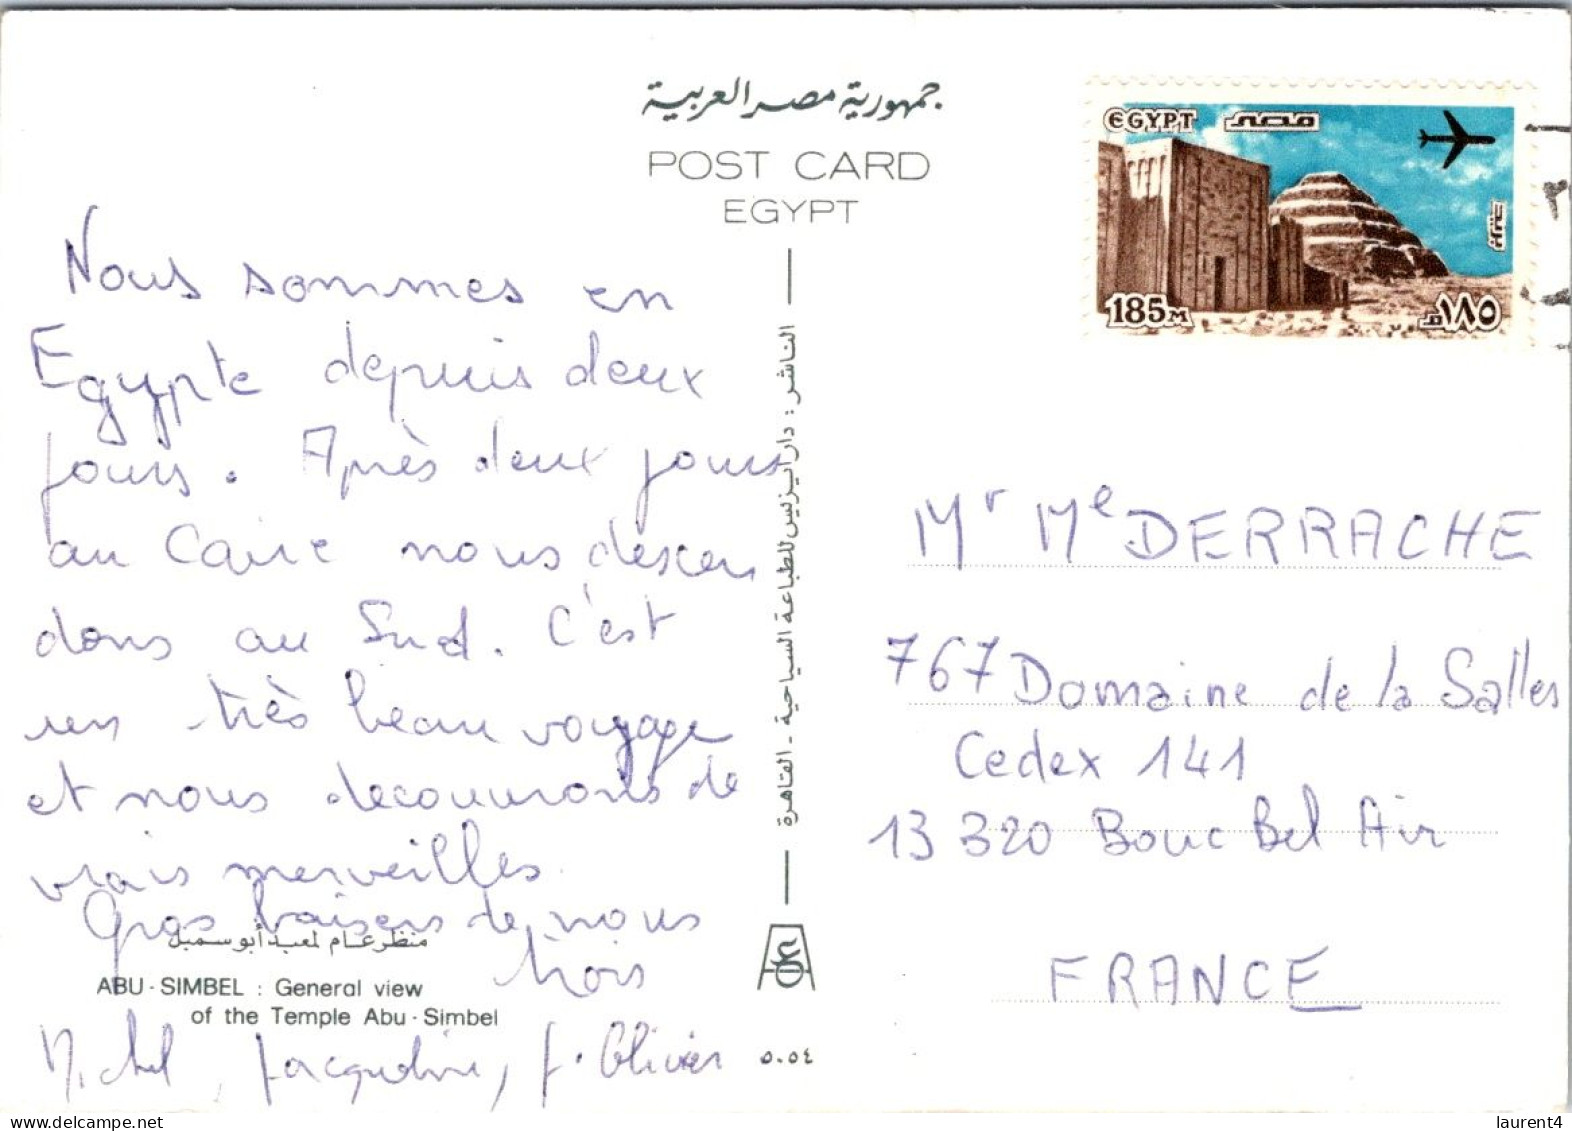 جمهورية مصر العربية
POST CARD
EGYPT
EGYPT مصر
بريد
185M ١٨٥م
Nous sommes en
Egypte depuis deux
jours. Après deux jours
au Caire nous descen
dons au Sud. C'est
un très beau voyage
et nous decouvrons de
vrais merveilles.
Gros baisers de nous
trois
Michel, Jacqueline, J. Olivier
منظر عام لمعبد أبو سمبل
ABU - SIMBEL : General view
of the Temple Abu - Simbel
الناشر : دار ايزيس للطباعة السياحية - القاهرة
٥٠٥٤
Mr Me DERRACHE
767 Domaine de la Salles
Cedex 141
13 320 Bouc Bel Air
FRANCE
laurent4